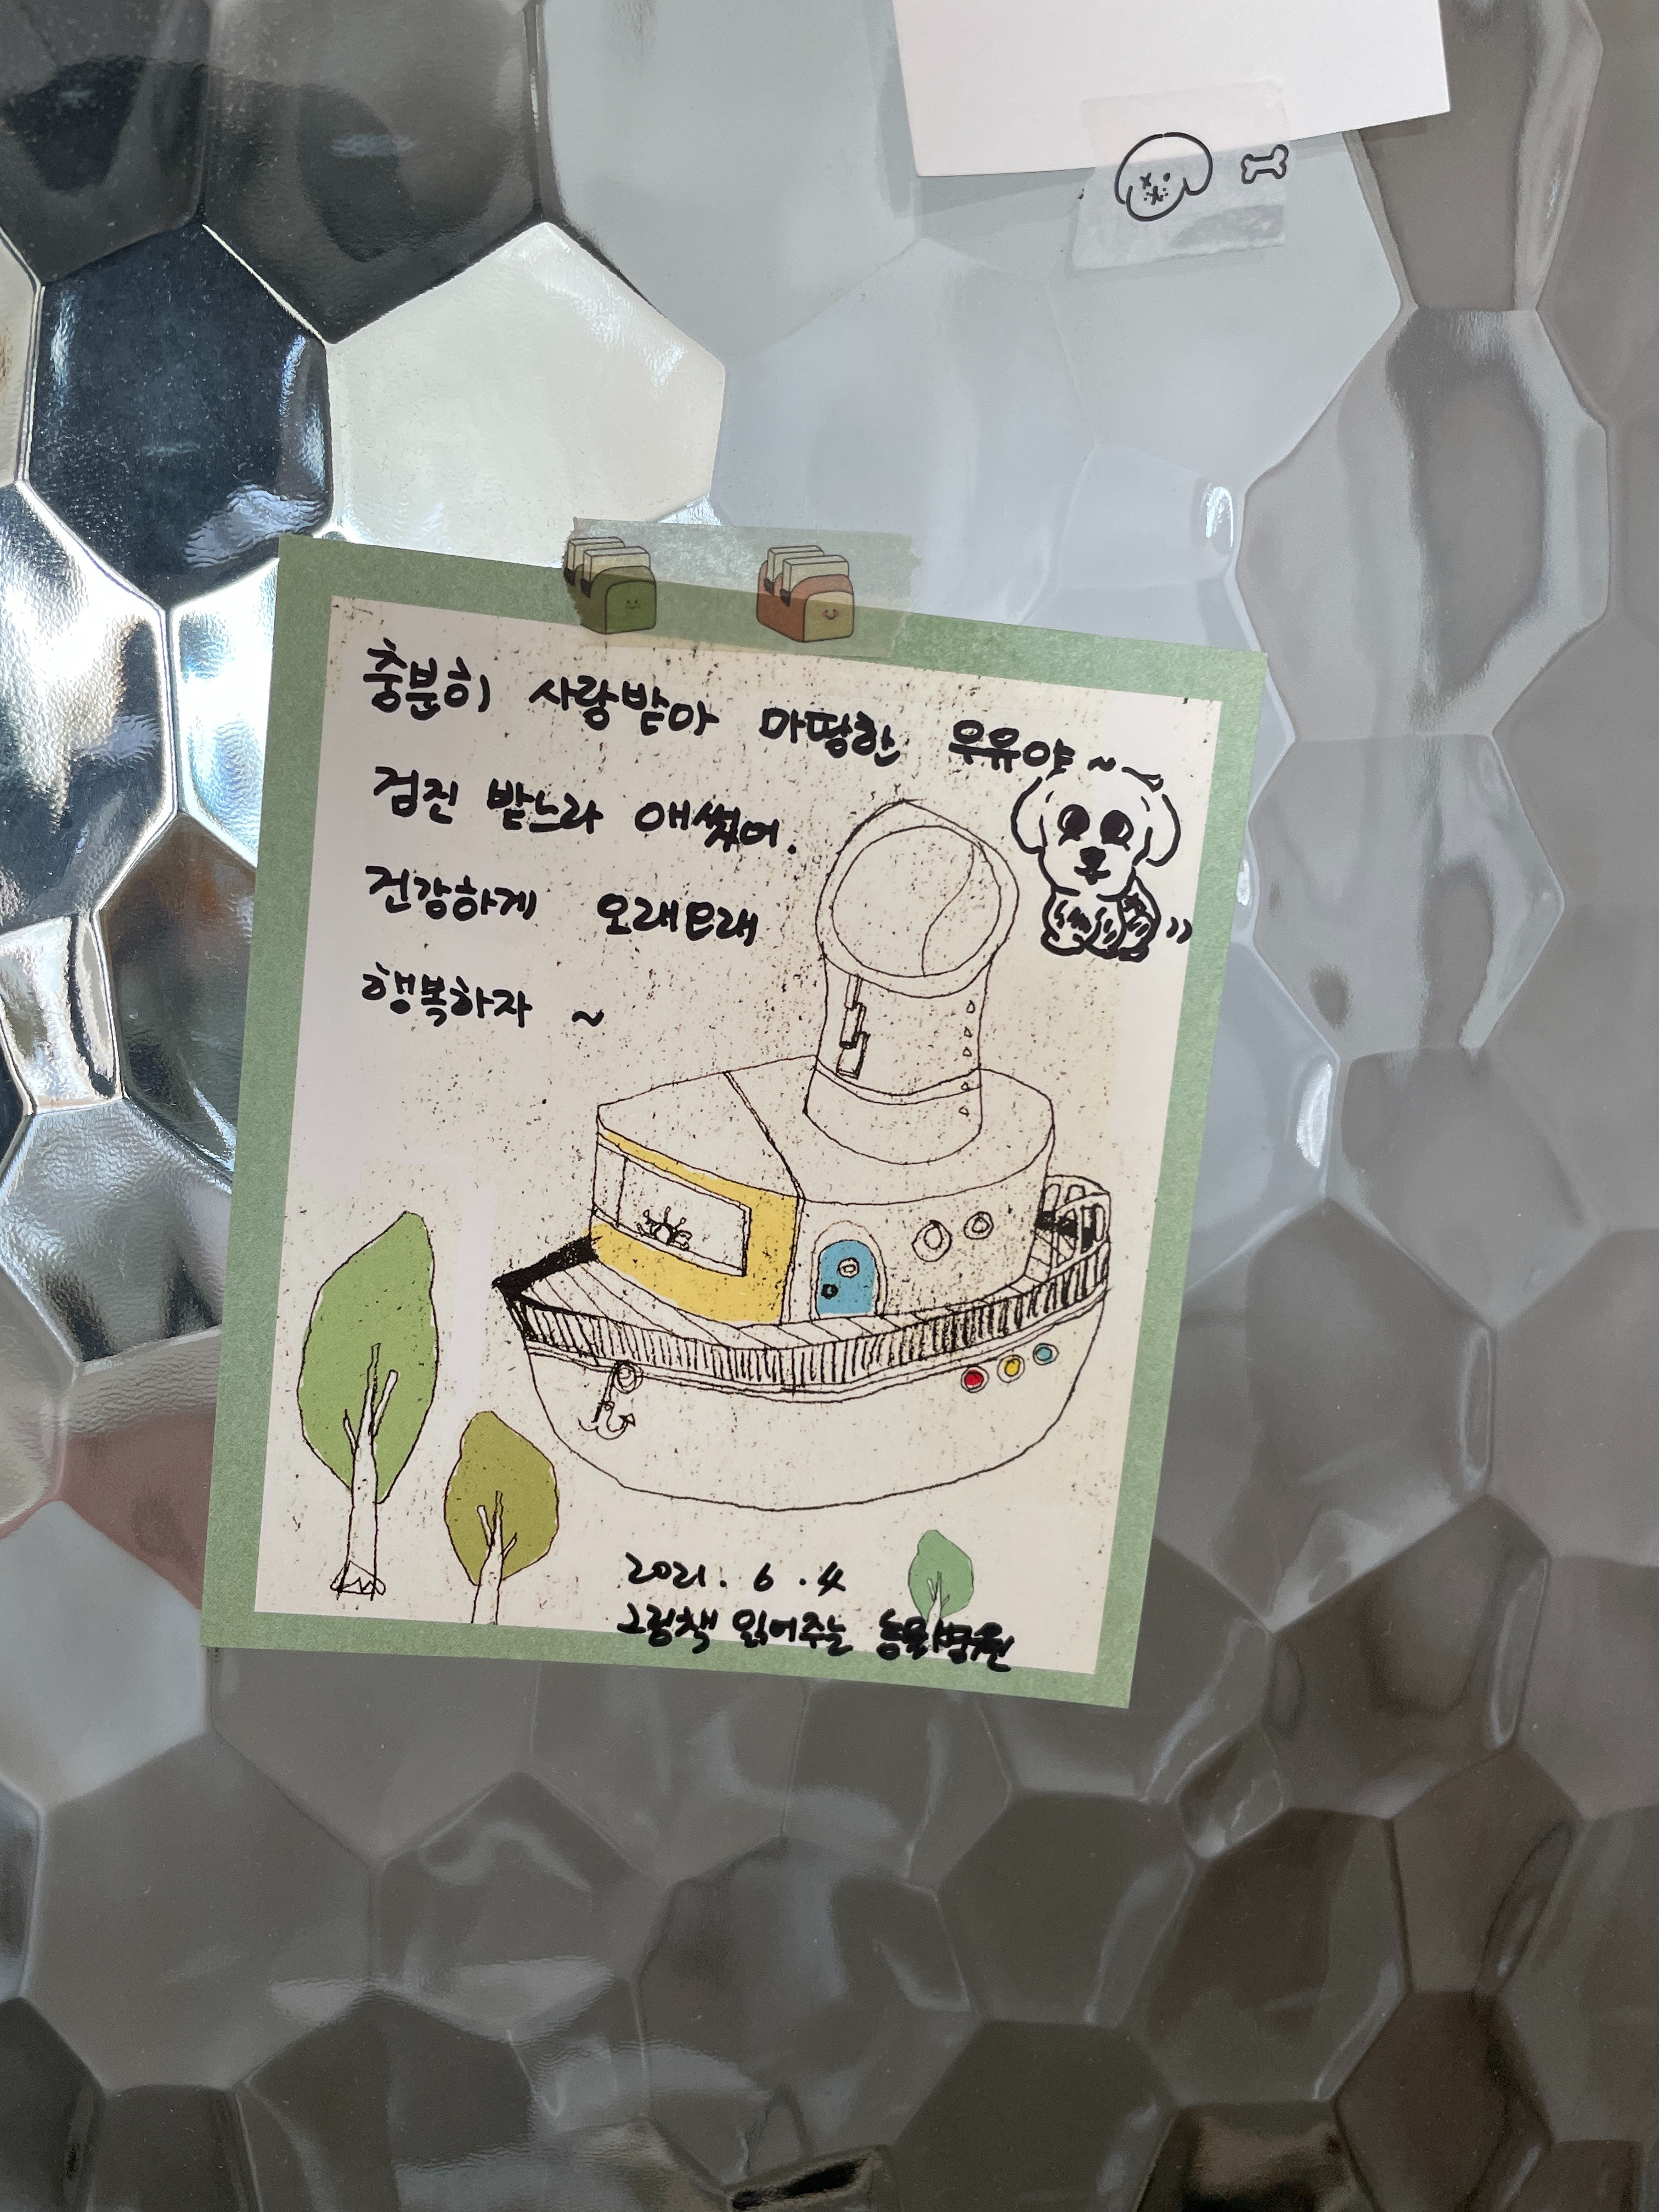 충분히 사랑받아 마땅한 우유야~
검진 받느라 애썼어.
건강하게 오래오래
행복하자 ~
2021. 6. 4
그림책 읽어주는 동물병원